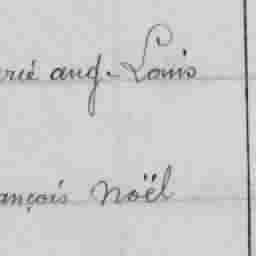 rié aug. Louis
ançois Noël